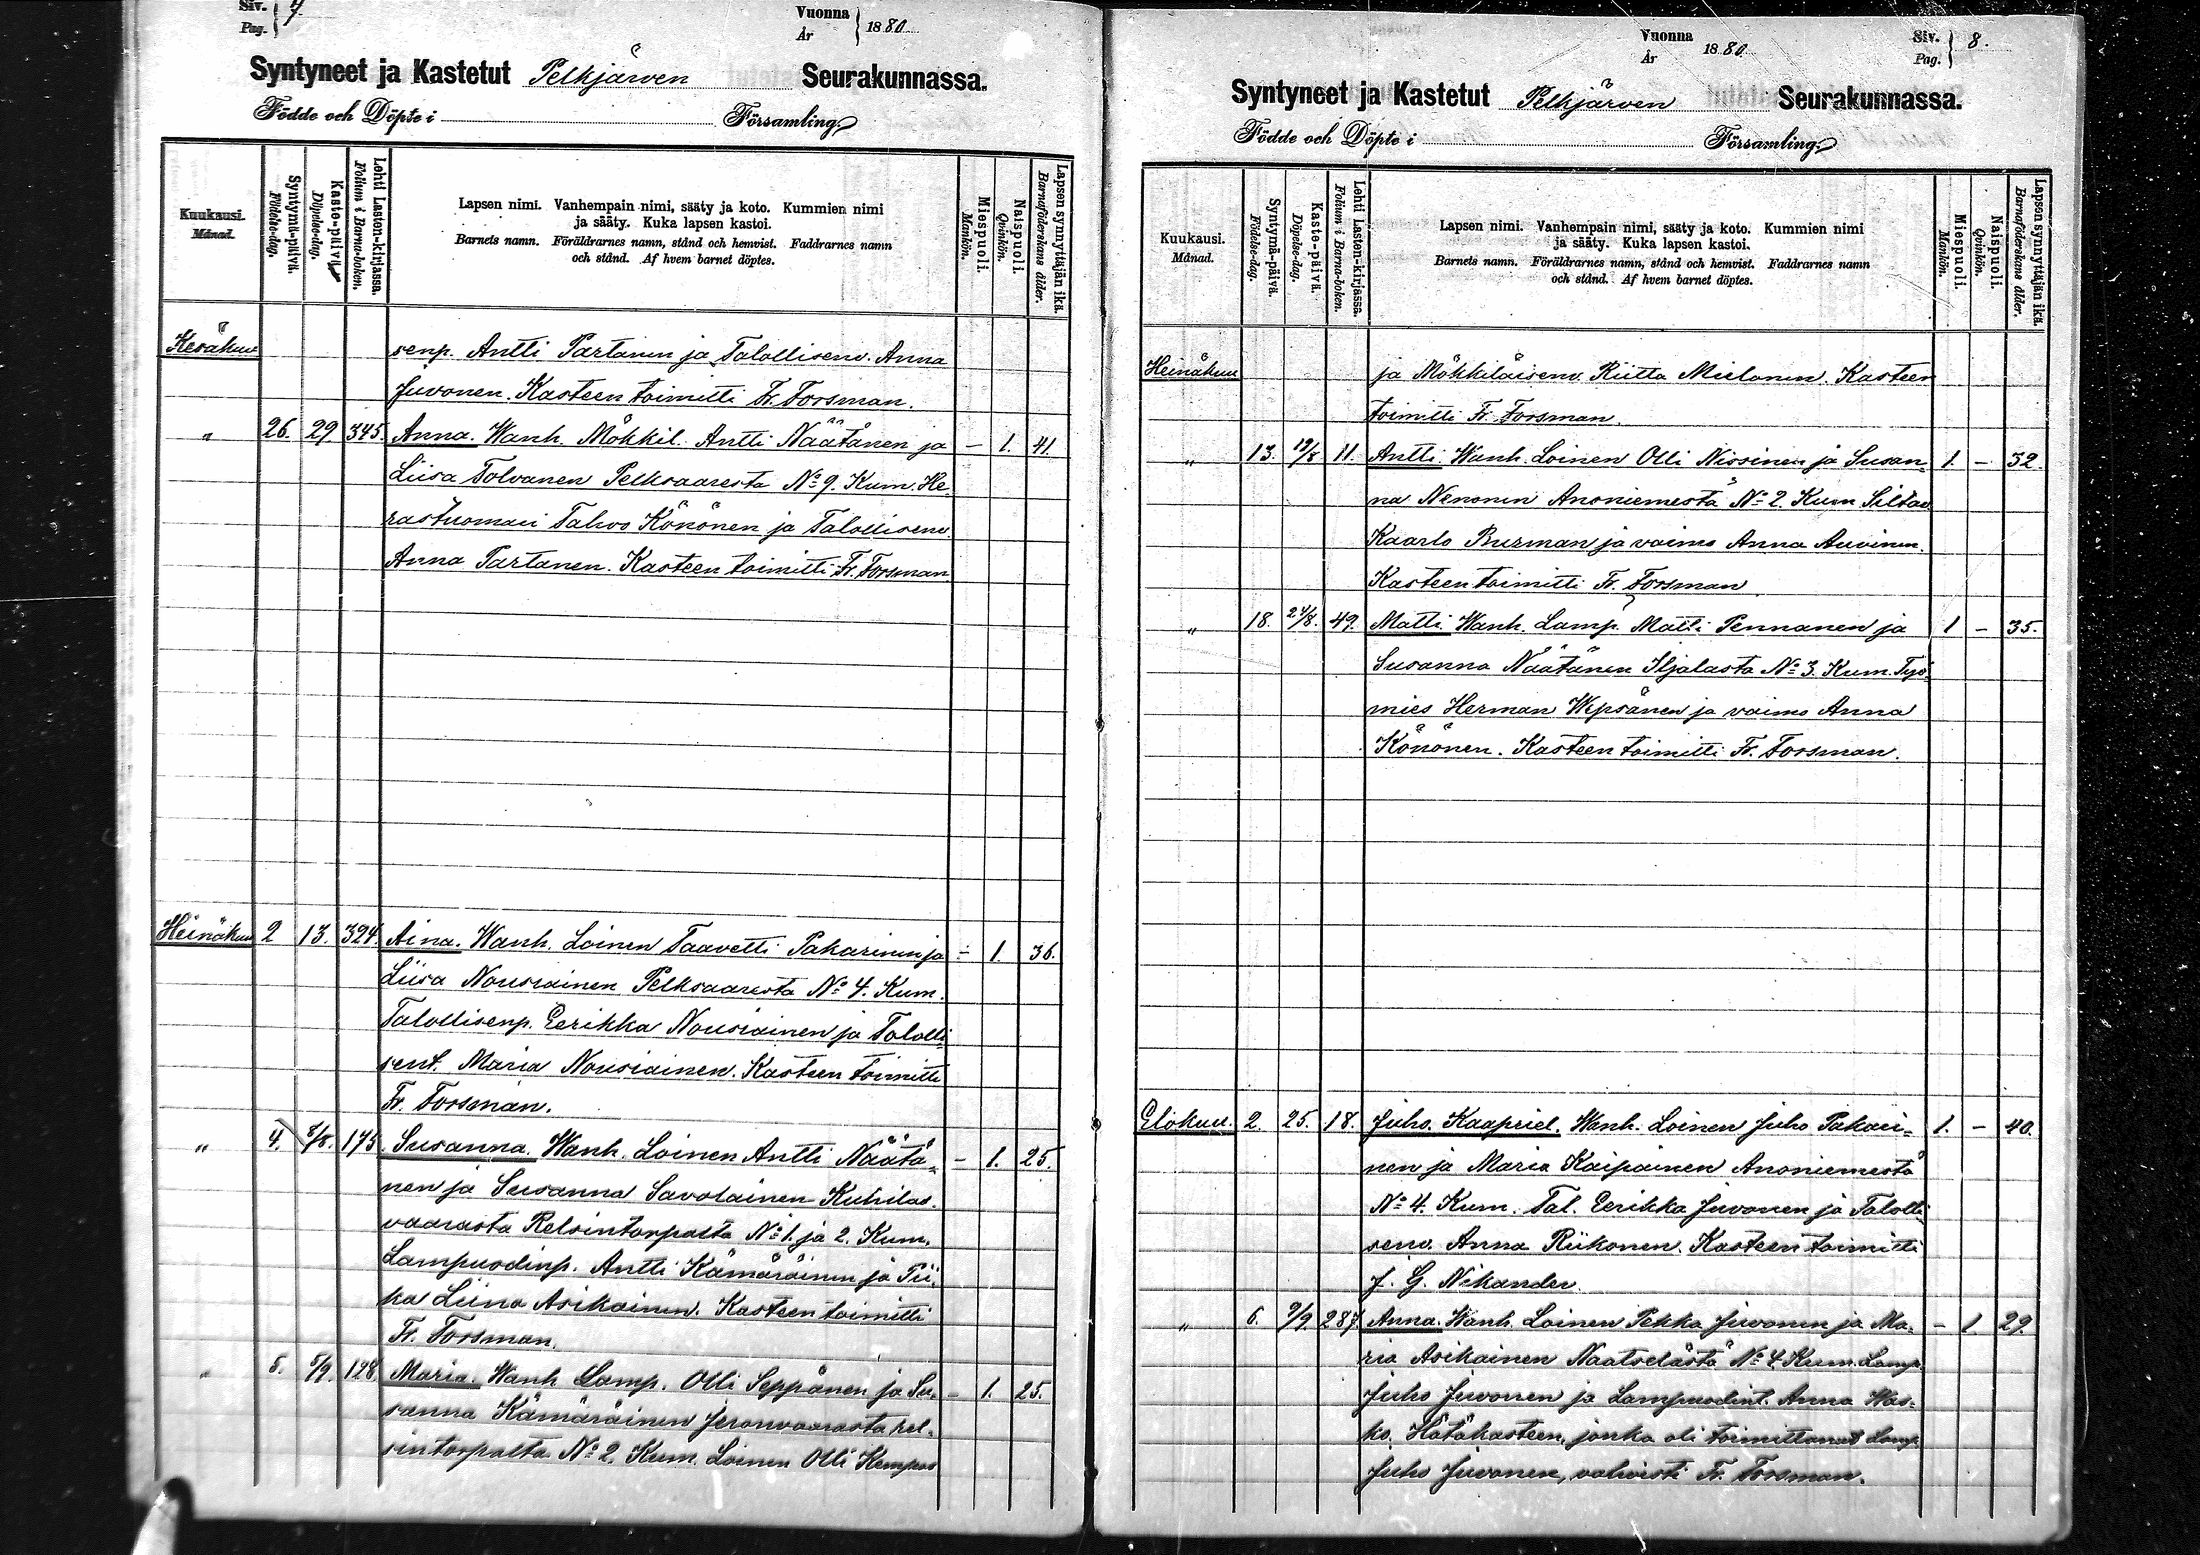 Siv. 7
Pag.
Vuonna 1880
År
Syntyneet ja Kastetut Pelkjärven Seurakunnassa.
Födde och Döpte i Församling
Kuukausi.
Månad.
Syntymä-päivä.
Födelse-dag.
Kaste-päivä.
Döpelse-dag.
Lehti Lasten-kirjassa.
Folium i Barna-boken.
Lapsen nimi. Vanhempain nimi, sääty ja koto. Kummien nimi
ja sääty. Kuka lapsen kastoi.
Barnets namn. Föräldrarnes namn, stånd och hemvist. Faddrarnes namn
och stånd. Af hvem barnet döptes.
Miespuoli.
Mankön.
Naispuoli.
Qvinkön.
Lapsen synnyttäjän ikä.
Barnaföderskans ålder.
Kesäkuu senp. Antti Partanen ja Talollisenv. Anna
Juvonen. Kasteen toimitti Fr. Forsman.
" 26. 29 345. Anna. Wanh. Mökkil. Antti Näätänen ja — 1. 41.
Liisa Tolvanen Pelksaaresta No 9. Kum. He-
rastuomari Tahvo Könönen ja Talollisenv.
Anna Partanen. Kasteen toimitti Fr. Forsman
Heinäkuu 2 13. 324. Aina. Wanh. Loinen Taavetti Pakarinen ja — 1. 36.
Liisa Nousiainen Pelksaaresta No 4. Kum.
Talollisenp. Eerikka Nousiainen ja Talolli-
sent. Maria Nousiainen. Kasteen toimitti
Fr. Forsman.
" 4. 8/8. 175. Susanna. Wanh. Loinen Antti Näätä- — 1. 25.
nen ja Susanna Savolainen Kuhilas-
vaarasta Relsintorpalta No 1. ja 2. Kum.
Lampuodinp. Antti Kämäräinen ja Pii-
ka Liina Asikainen. Kasteen toimitti
Fr. Forsman.
" 5. 5/9. 128. Maria. Wanh. Lamp. Olli Seppänen ja Su- — 1. 25.
sanna Kämäräinen Jeronvaarasta rel-
sintorpalta No 2. Kum. Loinen Olli Kempas
Vuonna 1880.
År
Siv. 8.
Pag.
Syntyneet ja Kastetut Pelkjärven Seurakunnassa.
Födde och Döpte i Församling
Kuukausi.
Månad.
Syntymä-päivä.
Födelse-dag.
Kaste-päivä.
Döpelse-dag.
Lehti Lasten-kirjassa.
Folium i Barna-boken.
Lapsen nimi. Vanhempain nimi, sääty ja koto. Kummien nimi
ja sääty. Kuka lapsen kastoi.
Barnets namn. Föräldrarnes namn, stånd och hemvist. Faddrarnes namn
och stånd. Af hvem barnet döptes.
Miespuoli.
Mankön.
Naispuoli.
Qvinkön.
Lapsen synnyttäjän ikä.
Barnaföderskans ålder.
Heinäkuu ja Mökkiläisenv. Riitta Mielonen. Kasteen
toimitti Fr. Forsman.
" 13. 19/8 11. Antti. Wanh. Loinen Olli Nissinen ja Susan- 1. — 32.
na Nenonen Anoniemestä No 2. Kum. Siltav.
Kaarlo Burman ja vaimo Anna Auvinen.
Kasteen toimitti Fr. Forsman
" 18. 24/8. 49. Matti. Wanh. Lamp. Matti Pennanen ja 1 — 35.
Susanna Näätänen Iljalasta No 3. Kum. Työ-
mies Herman Wepsänen ja vaimo Anna
Könönen. Kasteen toimitti Fr. Forsman.
Elokuu. 2. 25. 18. Juho. Kaapriel. Wanh. Loinen Juho Pakari- 1. — 40.
nen ja Maria Kaipainen Anoniemestä
No 4. Kum. Tal. Eerikka Juvonen ja Talolli-
senv. Anna Riikonen. Kasteen toimitti
J. G. Nikander.
" 6. 9/9. 287. Anna. Wanh. Loinen Pekka Juvonen ja Ma- — 1 29.
ria Asikainen Naatselästä No 4 Kum. Lamp.
Juho Juvonen ja Lampuodint. Anna Was-
ko. Hätäkasteen, jonka oli toimittanut Lamp.
Juho Juvonen, vahvisti Fr. Forsman.